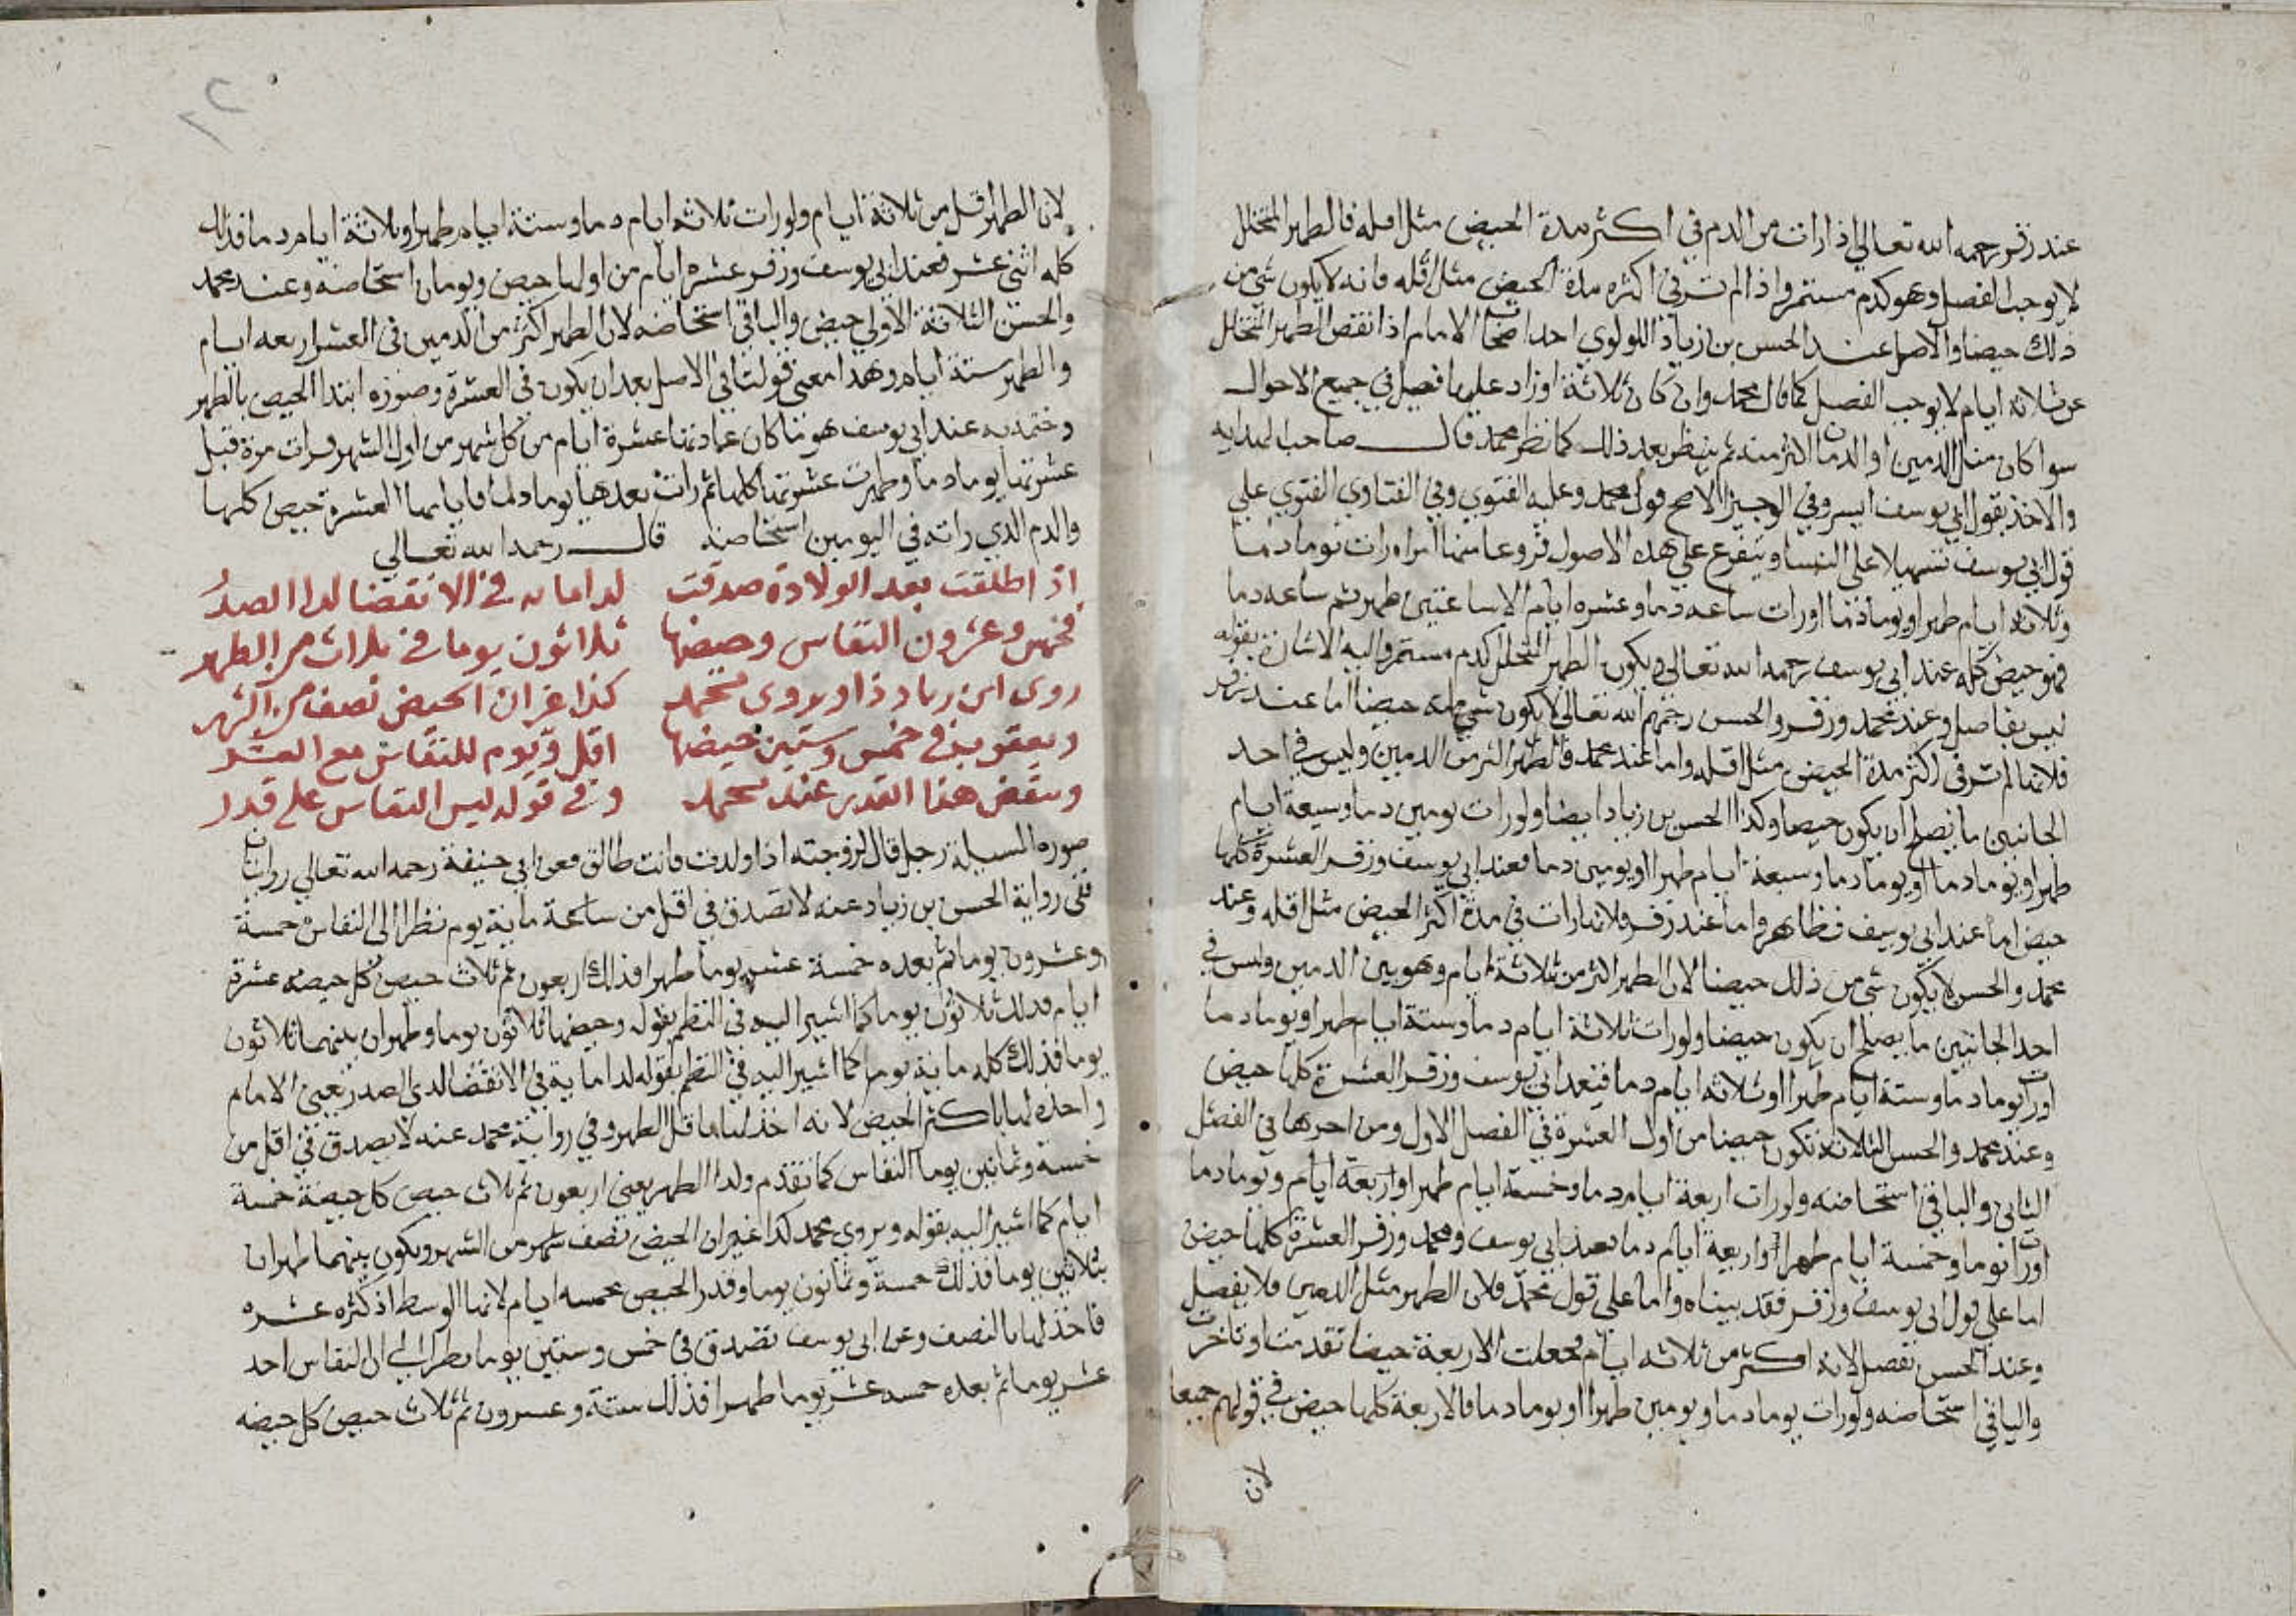 عند زفر رحمه الله تعالي اذا رات من الدم في اكثر مدة الحيض مثل اقله فالطهر المتخلل
لا يوجب الفصل وهو كدم مستمر واذا لم تر في اكثره مدة الحيض مثل اقله فانه لا يكون شي من
ذلك حيضا والاصل عند الحسن بن زياد اللولوي احد اصحاب الامام اذا نقص الطهر المتخلل
عن ثلاثة ايام لا يوجب الفصل كما قال محمد وان كان ثلاثة او زاد عليها فصل في جميع الاحوال
سوا كان مثل الدمين او الدمان اكثر منه ثم ينظر بعد ذلك كما نظر محمد قال صاحب الهدايه
والاخذ بقول ابي يوسف ايسر وفي الوجيز الاصح قول محمد وعليه الفتوي وفي الفتاوي الفتوي علي
قول ابي يوسف تسهيلا علي النسا ويتفرع علي هذه الاصول فروعا منها امراة رات يوما دما
وثلاثة ايام طهرا ويوما دما او رات ساعه دما وعشره ايام الا ساعتين طهر ثم ساعه دما
فهو حيض كله عند ابي يوسف رحمه الله تعالي ويكون الطهر المتخلل كدم مستمر واليه الاشارة بقوله
ليس بفاصل وعند محمد وزفر والحسن رحمهم الله تعالي لا يكون شي منه حيضا اما عند زفر
فلانها لم تر في اكثر مدة الحيض مثل اقله واما عند محمد فالطهر اكثر من الدمين وليس في احد
الجانبين ما يصلح ان يكون حيضا وكذا الحسن بن زياد ايضا ولو رات يومين دما وسبعة ايام
طهرا ويوما دما او يوما دما وسبعة ايام طهرا او يومين دما فعند ابي يوسف وزفر العشرة كلها
حيض اما عند ابي يوسف فظاهر واما عند زفر فلانها رات في مدة اكثر الحيض مثل اقله وعند
محمد والحسن لا يكون شي من ذلك حيضا لان الطهر اكثر من ثلاثة ايام وهو بين الدمين وليس في
احد الجانبين ما يصلح ان يكون حيضا ولو رات ثلاثة ايام دما وستة ايام طهرا ويوما دما
او رات يوما دما وستة ايام طهرا او ثلاثه ايام دما فعند ابي يوسف وزفر العشرة كلها حيض
وعند محمد والحسن الثلاثة تكون حيضا من اول العشرة في الفصل الاول ومن اخرها في الفصل
الثاني والباقي استحاضه ولو رات اربعة ايام دما وخمسة ايام طهرا واربعة ايام ويوما دما
او رات يوما وخمسة ايام طهرا او اربعة ايام دما فعند ابي يوسف ومحمد وزفر العشرة كلها حيض
اما علي قول ابي يوسف وزفر فقد بيناه واما علي قول محمد فلان الطهر مثل الدمين فلا يفصل
وعند الحسن تفصل لانه اكثر من ثلاثه ايام فجعلت الاربعة حيضا تقدمت او تاخرت
والباقي استحاضه ولو رات يوما دما ويومين طهرا او يوما دما فالاربعة كلها حيض في قولهم جميعا
لان
٢٠
لان الطهر اقل من ثلاثة ايام ولو رات ثلاثه ايام دما وستة ايام طهرا وثلاثة ايام دما فذلك
كله اثني عشر فعند ابي يوسف وزفر عشره ايام من اولها حيض ويومان استحاضه وعند محمد
والحسن الثلاثة الاولي حيض والباقي استحاضه لان الطهر اكثر من الدمين في العشر اربعه ايام
والطهر ستة ايام وهذا معني قولنا في الاصل بعد ان يكون في العشرة وصوره ابتدا الحيض بالطهر
وختمه به عند ابي يوسف هو ما كان عادتها عشرة ايام من كل شهر من اول الشهر فرات مرة قبل
عشرتها يوما دما وطهرت عشرتها كلها ثم رات بعدها يوما دما فايامها العشرة حيض كلها
والدم الذي راته في اليومين استحاضه قال رحمه الله تعالي
اذا طلقت بعد الولادة صدقت لدا مايه في الانقضا لدا الصدر
فخمس وعشرون النفاس وحيضها ثلاثون يوما في ثلاث من الطهر
روى ابن زياد ذا ويروى محمد كذا غير ان الحيض نصف من الشهر
ويعقوب في خمس وستين حيضها اقل ويوم للنفاس مع العشر
وينقض هذا القدر عند محمد وفي قوله ليس النفاس على قدر
صورة المسيلة رجل قال لزوجته اذا ولدت فانت طالق فعن ابي حنيفة رحمه الله تعالي روايتان
ففي رواية الحسن بن زياد عنه لا تصدق في اقل من ساعة ماية يوم نظرا الي النفاس خمسة
وعشرون يوما ثم بعده خمسة عشر يوما طهرا فذلك اربعون ثم ثلاث حيض كل حيضه عشرة
ايام فذلك ثلاثون يوما كما اشير اليه في النظم بقوله وحيضها ثلاثون يوما وطهران بينهما ثلاثون
يوما فذلك كله ماية يوم كما اشير اليه في النظم بقوله لدا ماية في الانقضا لدي الصدر يعني الامام
واخذه لها باكثر الحيض لانه اخذ لها باقل الطهر وفي رواية محمد عنه لا يصدق في اقل من
خمسة وثمانين يوما النفاس كما تقدم ولدا الطهر يعني اربعون ثم ثلاث حيض كل حيضة خمسة
ايام كما اشير اليه بقوله ويروي محمد كذا غير ان الحيض نصف شهر من الشهر ويكون بينهما طهران
بثلاثين يوما فذلك خمسة وثمانون يوما وقدر الحيض بخمسه ايام لانها الوسط اذ اكثره عشره
فاخذ لها بالنصف وعن ابي يوسف تصدق في خمس وستين يوما نظرا الي ان النفاس احد
عشر يوما ثم بعده خمسه عشر يوما طهرا فذلك ستة وعشرون ثم ثلاث حيض كل حيضه